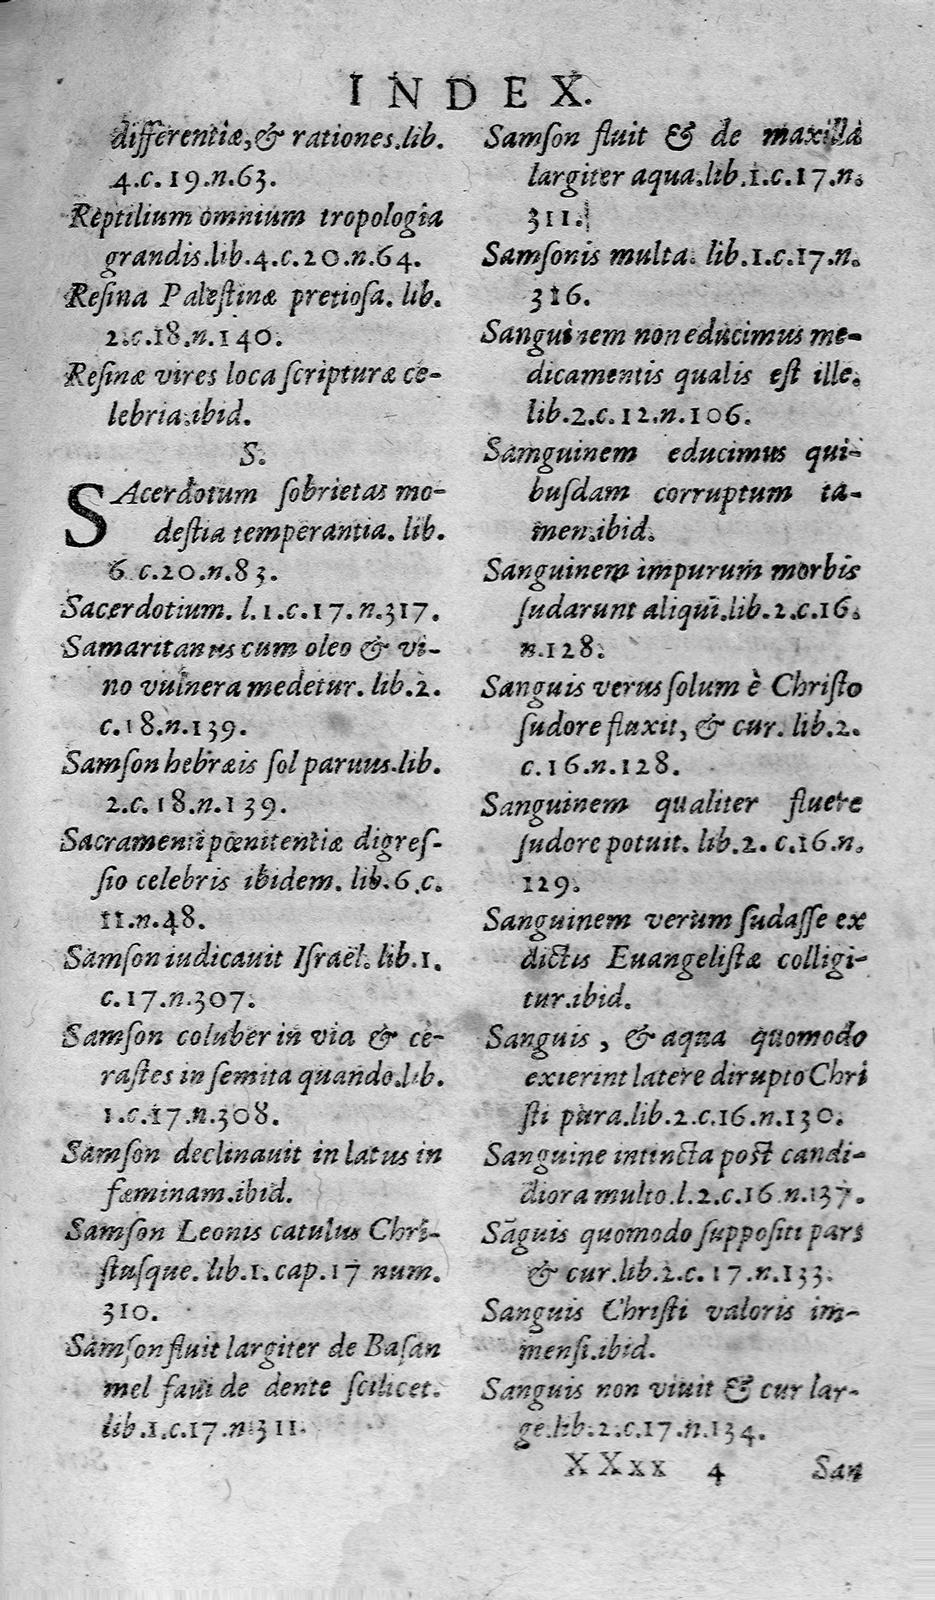 INDEX.
differentiæ,& rationes.lib.
4.c.19.n.63.
Reptilium omnium tropologia
grandis.lib.4.c.20.n.64.
Reſina Paleſtinæ pretioſa. lib.
2.c.18.n.140.
Reſinæ vires loca ſcripturæ ce-
lebria.ibid.
S.
SAcerdotum ſobrietas mo-
deſtia temperantia. lib.
6.c.20.n.83.
Sacerdotium. l.1.c.17.n.317.
Samaritanus cum oleo & vi-
no vulnera medetur. lib.2.
c.18.n.139.
Samſon hebræis ſol paruus.lib.
2.c.18.n.139.
Sacramenti pœnitentiæ digreſ-
ſio celebris ibidem. lib.6.c.
11.n.48.
Samſon iudicauit Iſraël. lib.1.
c.17.n.307.
Samſon coluber in via & ce-
raſtes in ſemita quando.lib.
1.c.17.n.308.
Samſon declinauit in latus in
fæminam.ibid.
Samſon Leonis catulus Chri-
ſtuſque. lib.1. cap.17 num.
310.
Samſon fluit largiter de Baſan
mel faui de dente ſcilicet.
lib.1.c.17.n.311.
Samſon fluit & de maxilla
largiter aqua.lib.1.c.17.n.
311.
Samſonis multa. lib.1.c.17.n.
316.
Sanguinem non educimus me-
dicamentis qualis eſt ille.
lib.2.c.12.n.106.
Samguinem educimus qui-
buſdam corruptum ta-
men.ibid.
Sanguinem impurum morbis
ſudarunt aliqui.lib.2.c.16.
n.128.
Sanguis verus ſolum è Chriſto
ſudore fluxit, & cur. lib.2.
c.16.n.128.
Sanguinem qualiter fluere
ſudore potuit. lib.2. c.16.n.
129.
Sanguinem verum ſudaſſe ex
dictis Euangeliſtæ colligi-
tur.ibid.
Sanguis, & aqua quomodo
exierint latere dirupto Chri
ſti pura.lib.2.c.16.n.130.
Sanguine intincta poſt candi-
diora multo.l.2.c.16.n.137.
Sāguis quomodo ſuppoſiti pars
& cur.lib.2.c.17.n.133.
Sanguis Chriſti valoris im-
menſi.ibid.
Sanguis non viuit & cur lar-
ge.lib.2.c.17.n.134.
XXxx 4 San